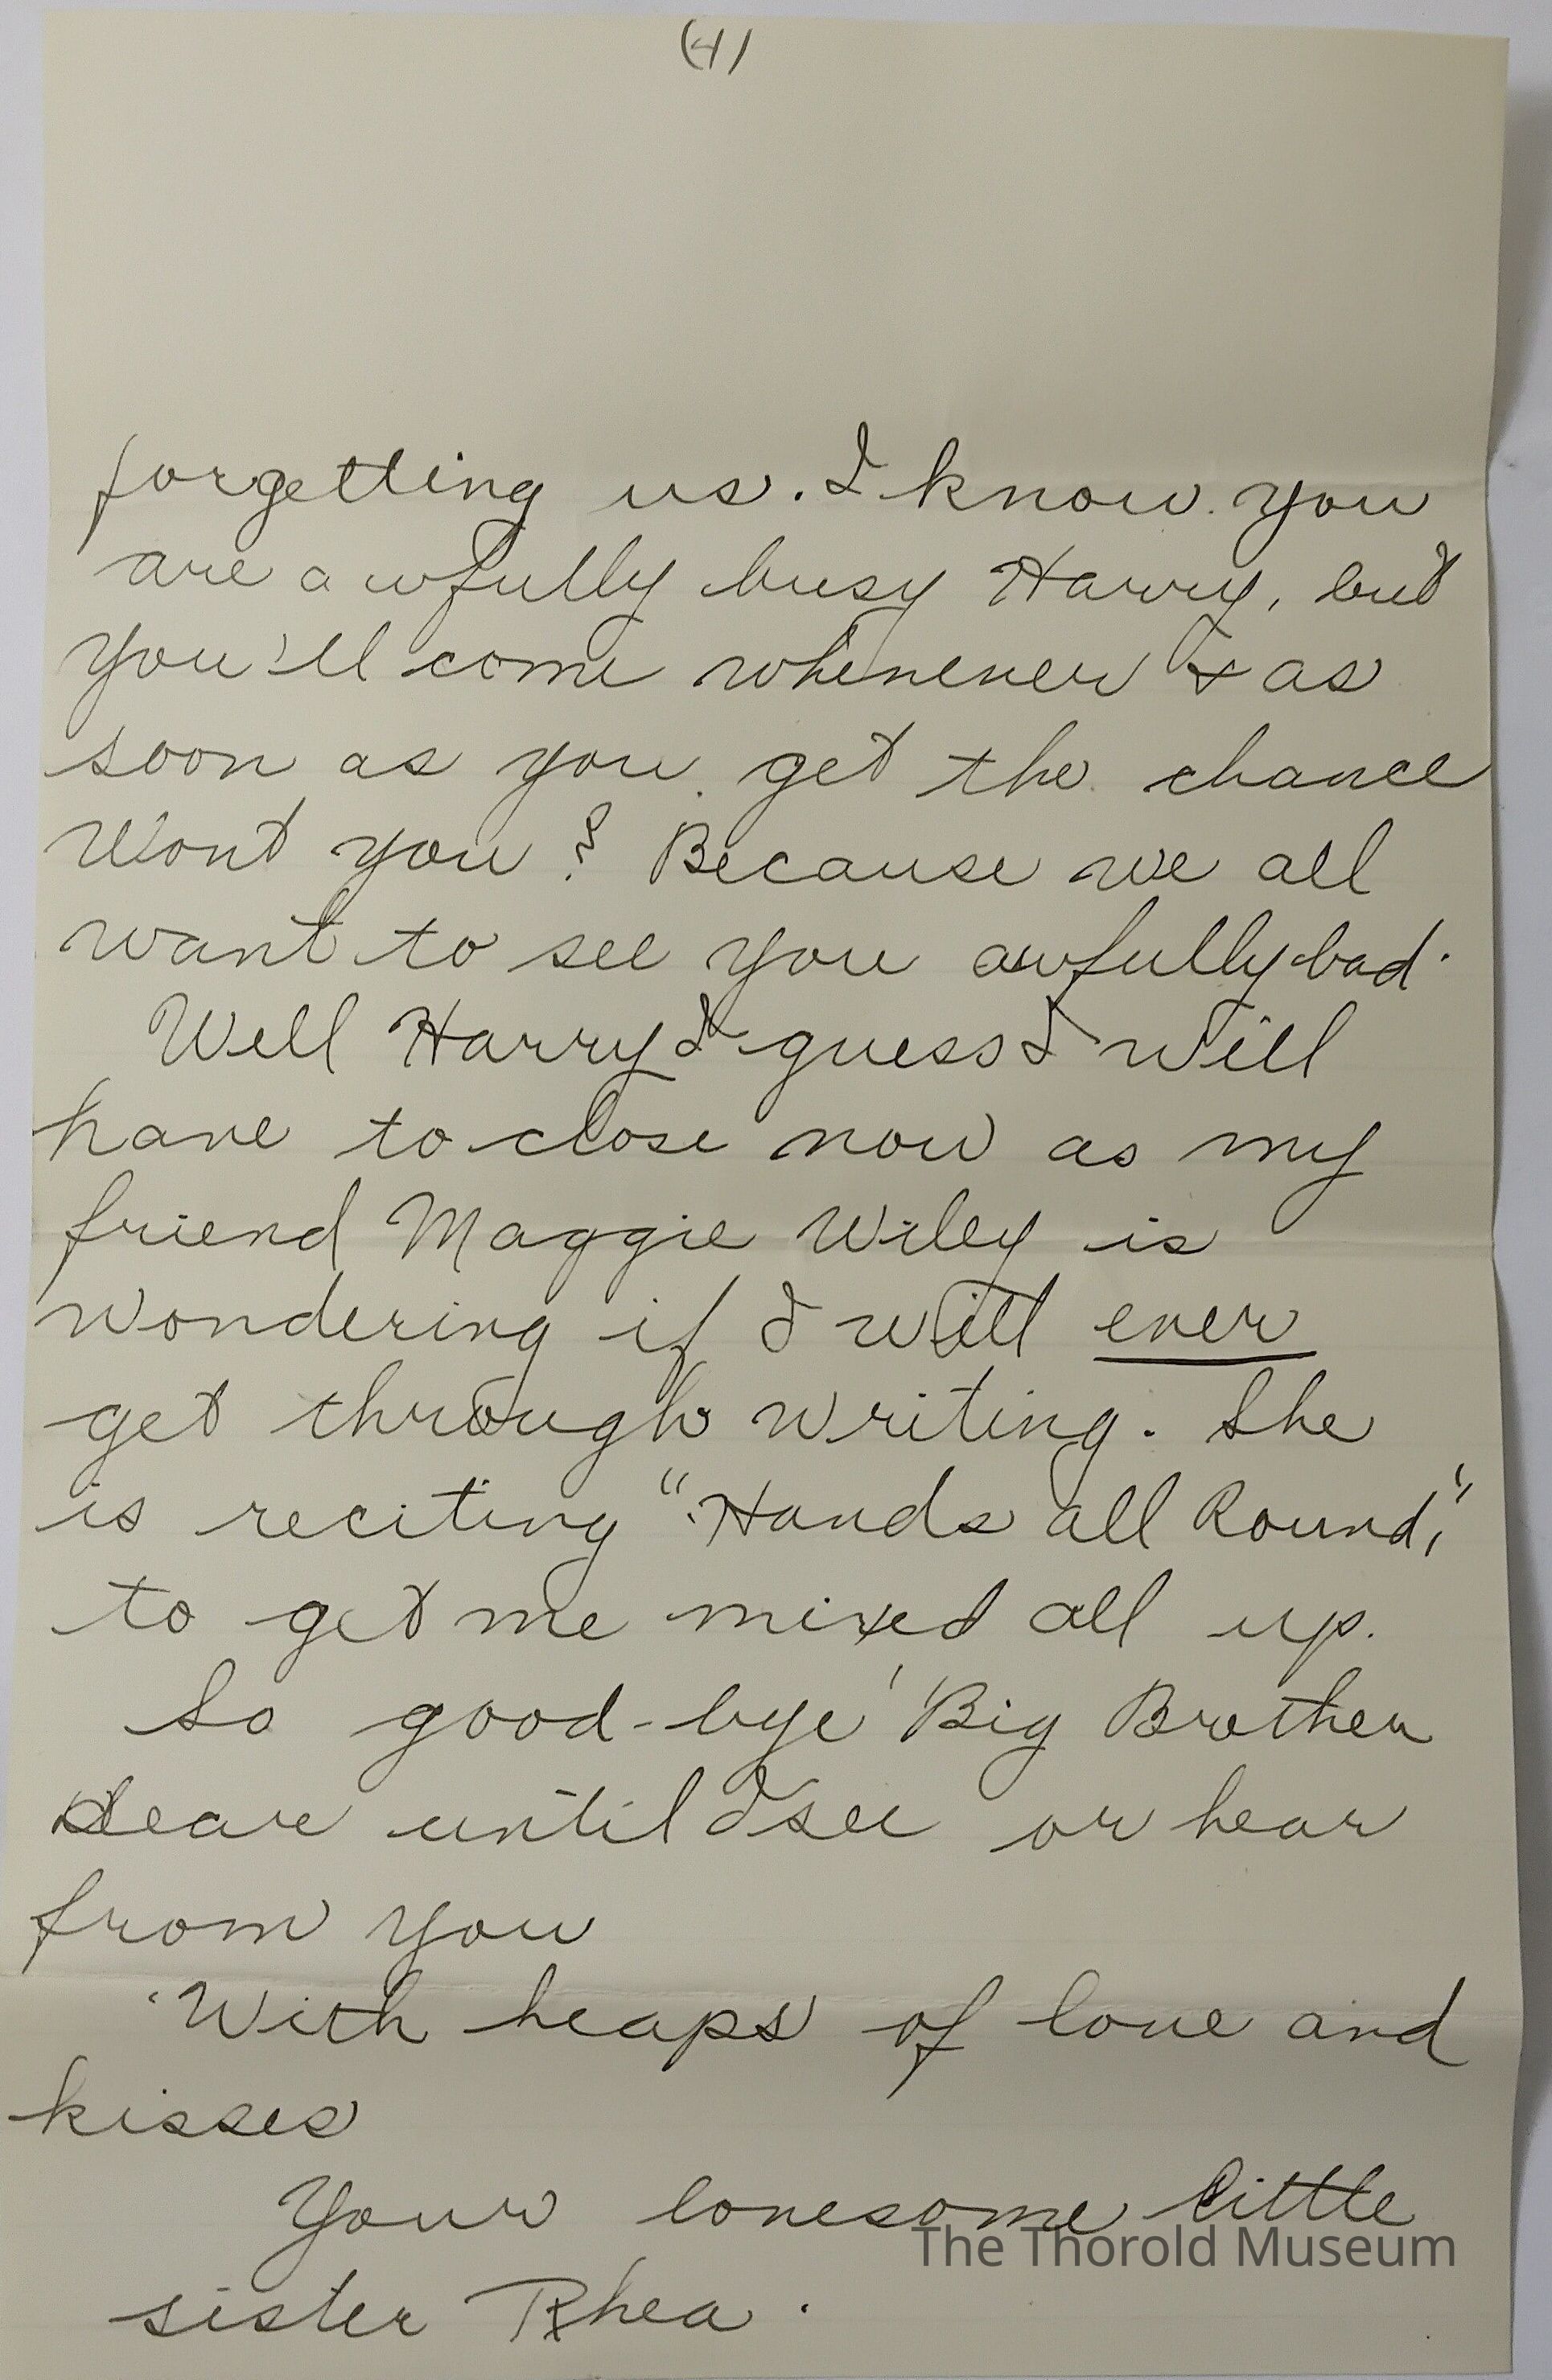 (4)
forgetting us. I know you
are awfully busy Harry, but
you'll come whenever & as
soon as you get the chance
Wont you? Because we all
want to see you awfully bad.
Well Harry I guess I will
have to close now as my
friend Maggie Wiley is
wondering if I will ever
get through writing. She
is reciting "Hands all Round,"
to get me mixed all up.
So good-bye Big Brother
dear until I see or hear
from you
With heaps of love and
kisses
Your lonesome little
The Thorold Museum
sister Rhea.